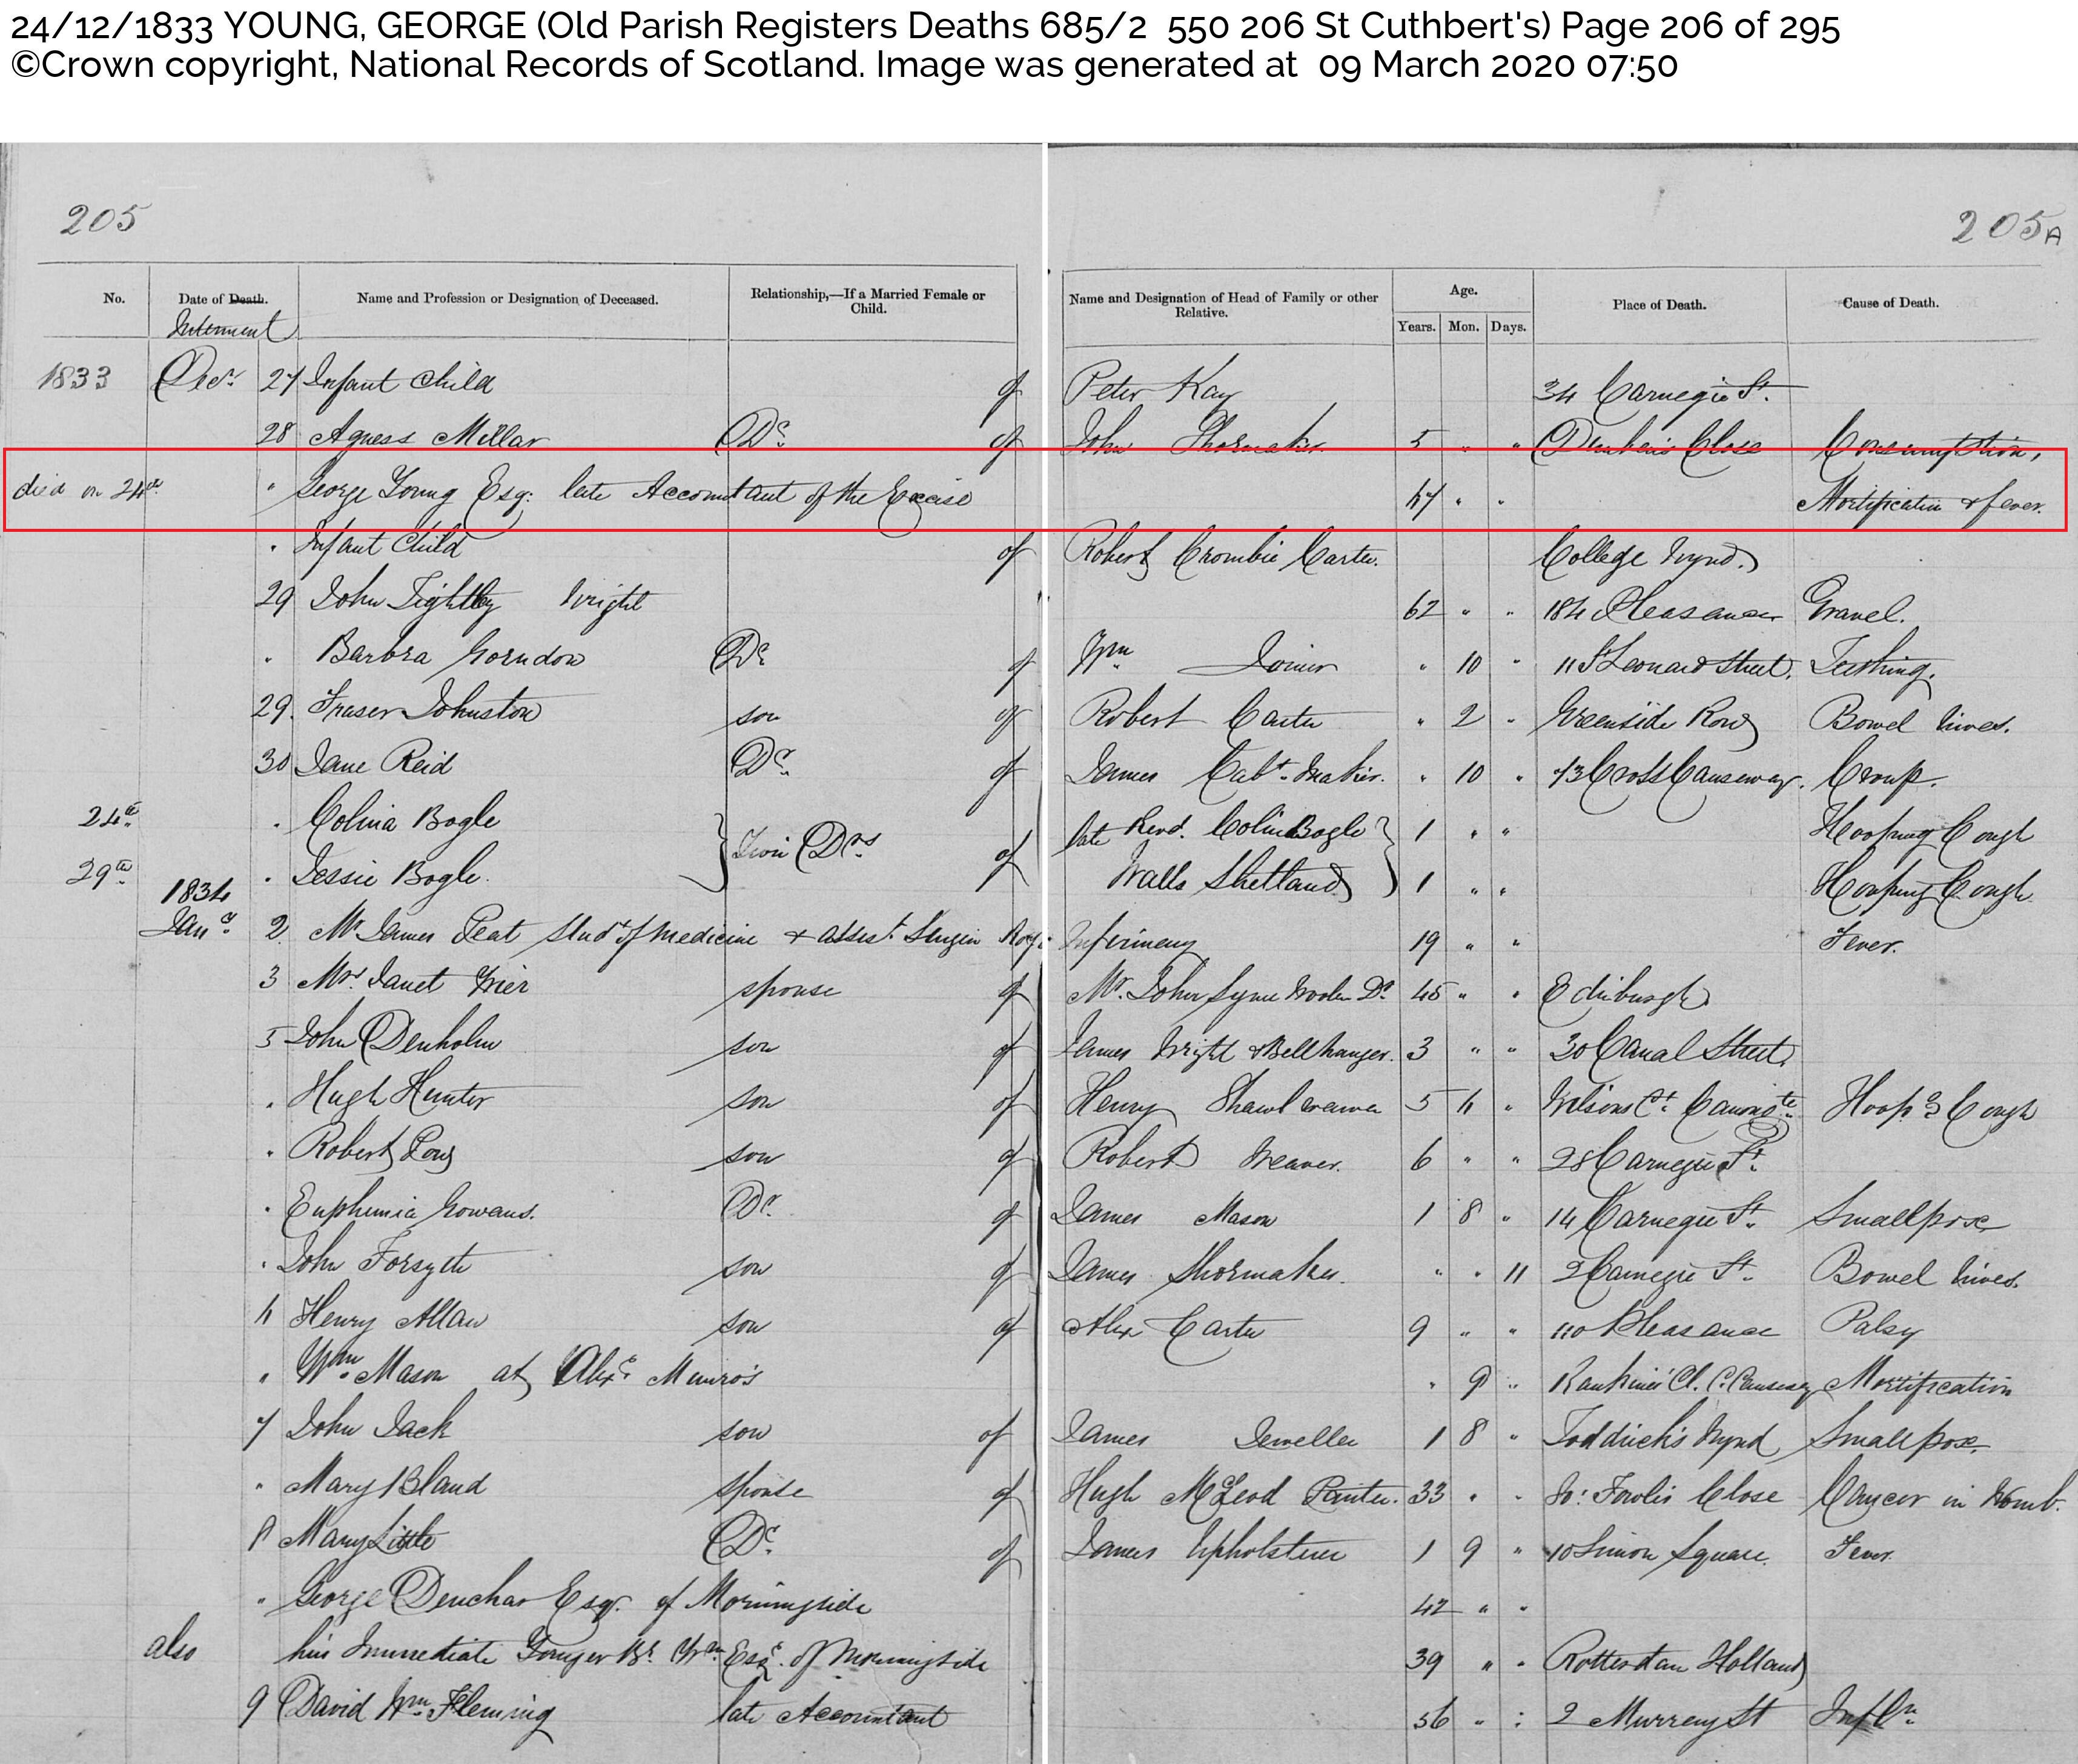 24/12/1833 YOUNG, GEORGE (Old Parish Registers Deaths 685/2 550 206 St Cuthbert's) Page 206 of 295
©Crown copyright, National Records of Scotland. Image was generated at 09 March 2020 07:50
205 205A
No. Date of Death. Name and Profession or Designation of Deceased. Relationship,—If a Married Female or Child. Name and Designation of Head of Family or other Relative. Age. Years. Mon. Days. Place of Death. Cause of Death.
Interment
1833 Decr. 27 Infant Child of Peter Kay 34 Carnegie St.
28 Agness Millar Dr. of John Shoemaker 5 " " Close Consumption,
died on 24th " George Young Esq: late Accountant of the Excise 67 " " Mortification & fever.
" Infant Child of Robert Crombie Carter. College Wynd.
29 John Wright 62 " " 184 Pleasance Gravel.
" Barbra Gorndon Dr. of Wm Joiner " 10 " 11 St Leonard Street. Teething.
29. Fraser Johnston son of Robert Carter " 2 " Greenside Row Bowel hives.
30 Jane Reid Dr. of James Cabt. Maker. " 10 " 73 Cross Causeway. Croup.
24th " Colina Bogle } Twin Drs of late Revd. Colin Bogle } 1 " " Hooping Cough
29th " Jessie Bogle. Walls Shetland 1 " " Hooping Cough
1834
Jany. 2 Mr James Peat Studt of Medicine & assist. Surgen Royl Infirmary 19 " " Fever.
3 Mrs Janet Grier spouse of Mr. John Syme Woolen Dr. 45 " " Edinburgh
5 John Denholm son of James Wright & Bellhanger. 3 " " 30 Canal Street
" Hugh Hunter son of Henry Shawl weaver 5 6 " Wilsons Ct. Canongte. Hoopg Cough
" Robert son of Robert Weaver. 6 " " 28 Carnegie St.
" Euphemia Gowans. Dr. of James Mason 1 8 " 14 Carnegie St. Smallpox
" John Forsyth son of James Shoemaker. " " 11 2 Carnegie St. Bowel hives.
6 Henry Allan son of Alex Carter 9 " " 110 Pleasance Palsy
" Wm. Mason at Alexr Munro's " 9 " Rankines Cl. C. Causeway Mortification
7 John Jack son of James Jeweller 1 8 " Toddrick's Wynd Smallpox.
" Mary Bland spouse of Hugh McLeod Painter. 33 " " So: Fowlis Close Cancer in Womb.
8 Mary Little Dr. of James Upholsterer 1 9 " 10 Simon Square. Fever.
" George Deuchar Esqr. of Morningside 42 " "
also his Immediate Younger Br. Wm. Esqr. of Morningside 39 " " Rotterdam Holland
9 David Wm. Fleming late Accountant 56 " " 2 Murray St Infln.